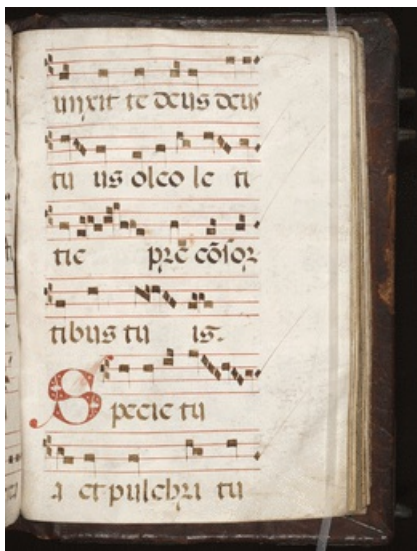 unxit te deus deus
tu us oleo le ti
tie pre cōsor
tibus tu is.
Specie tu
a et pulchri tu